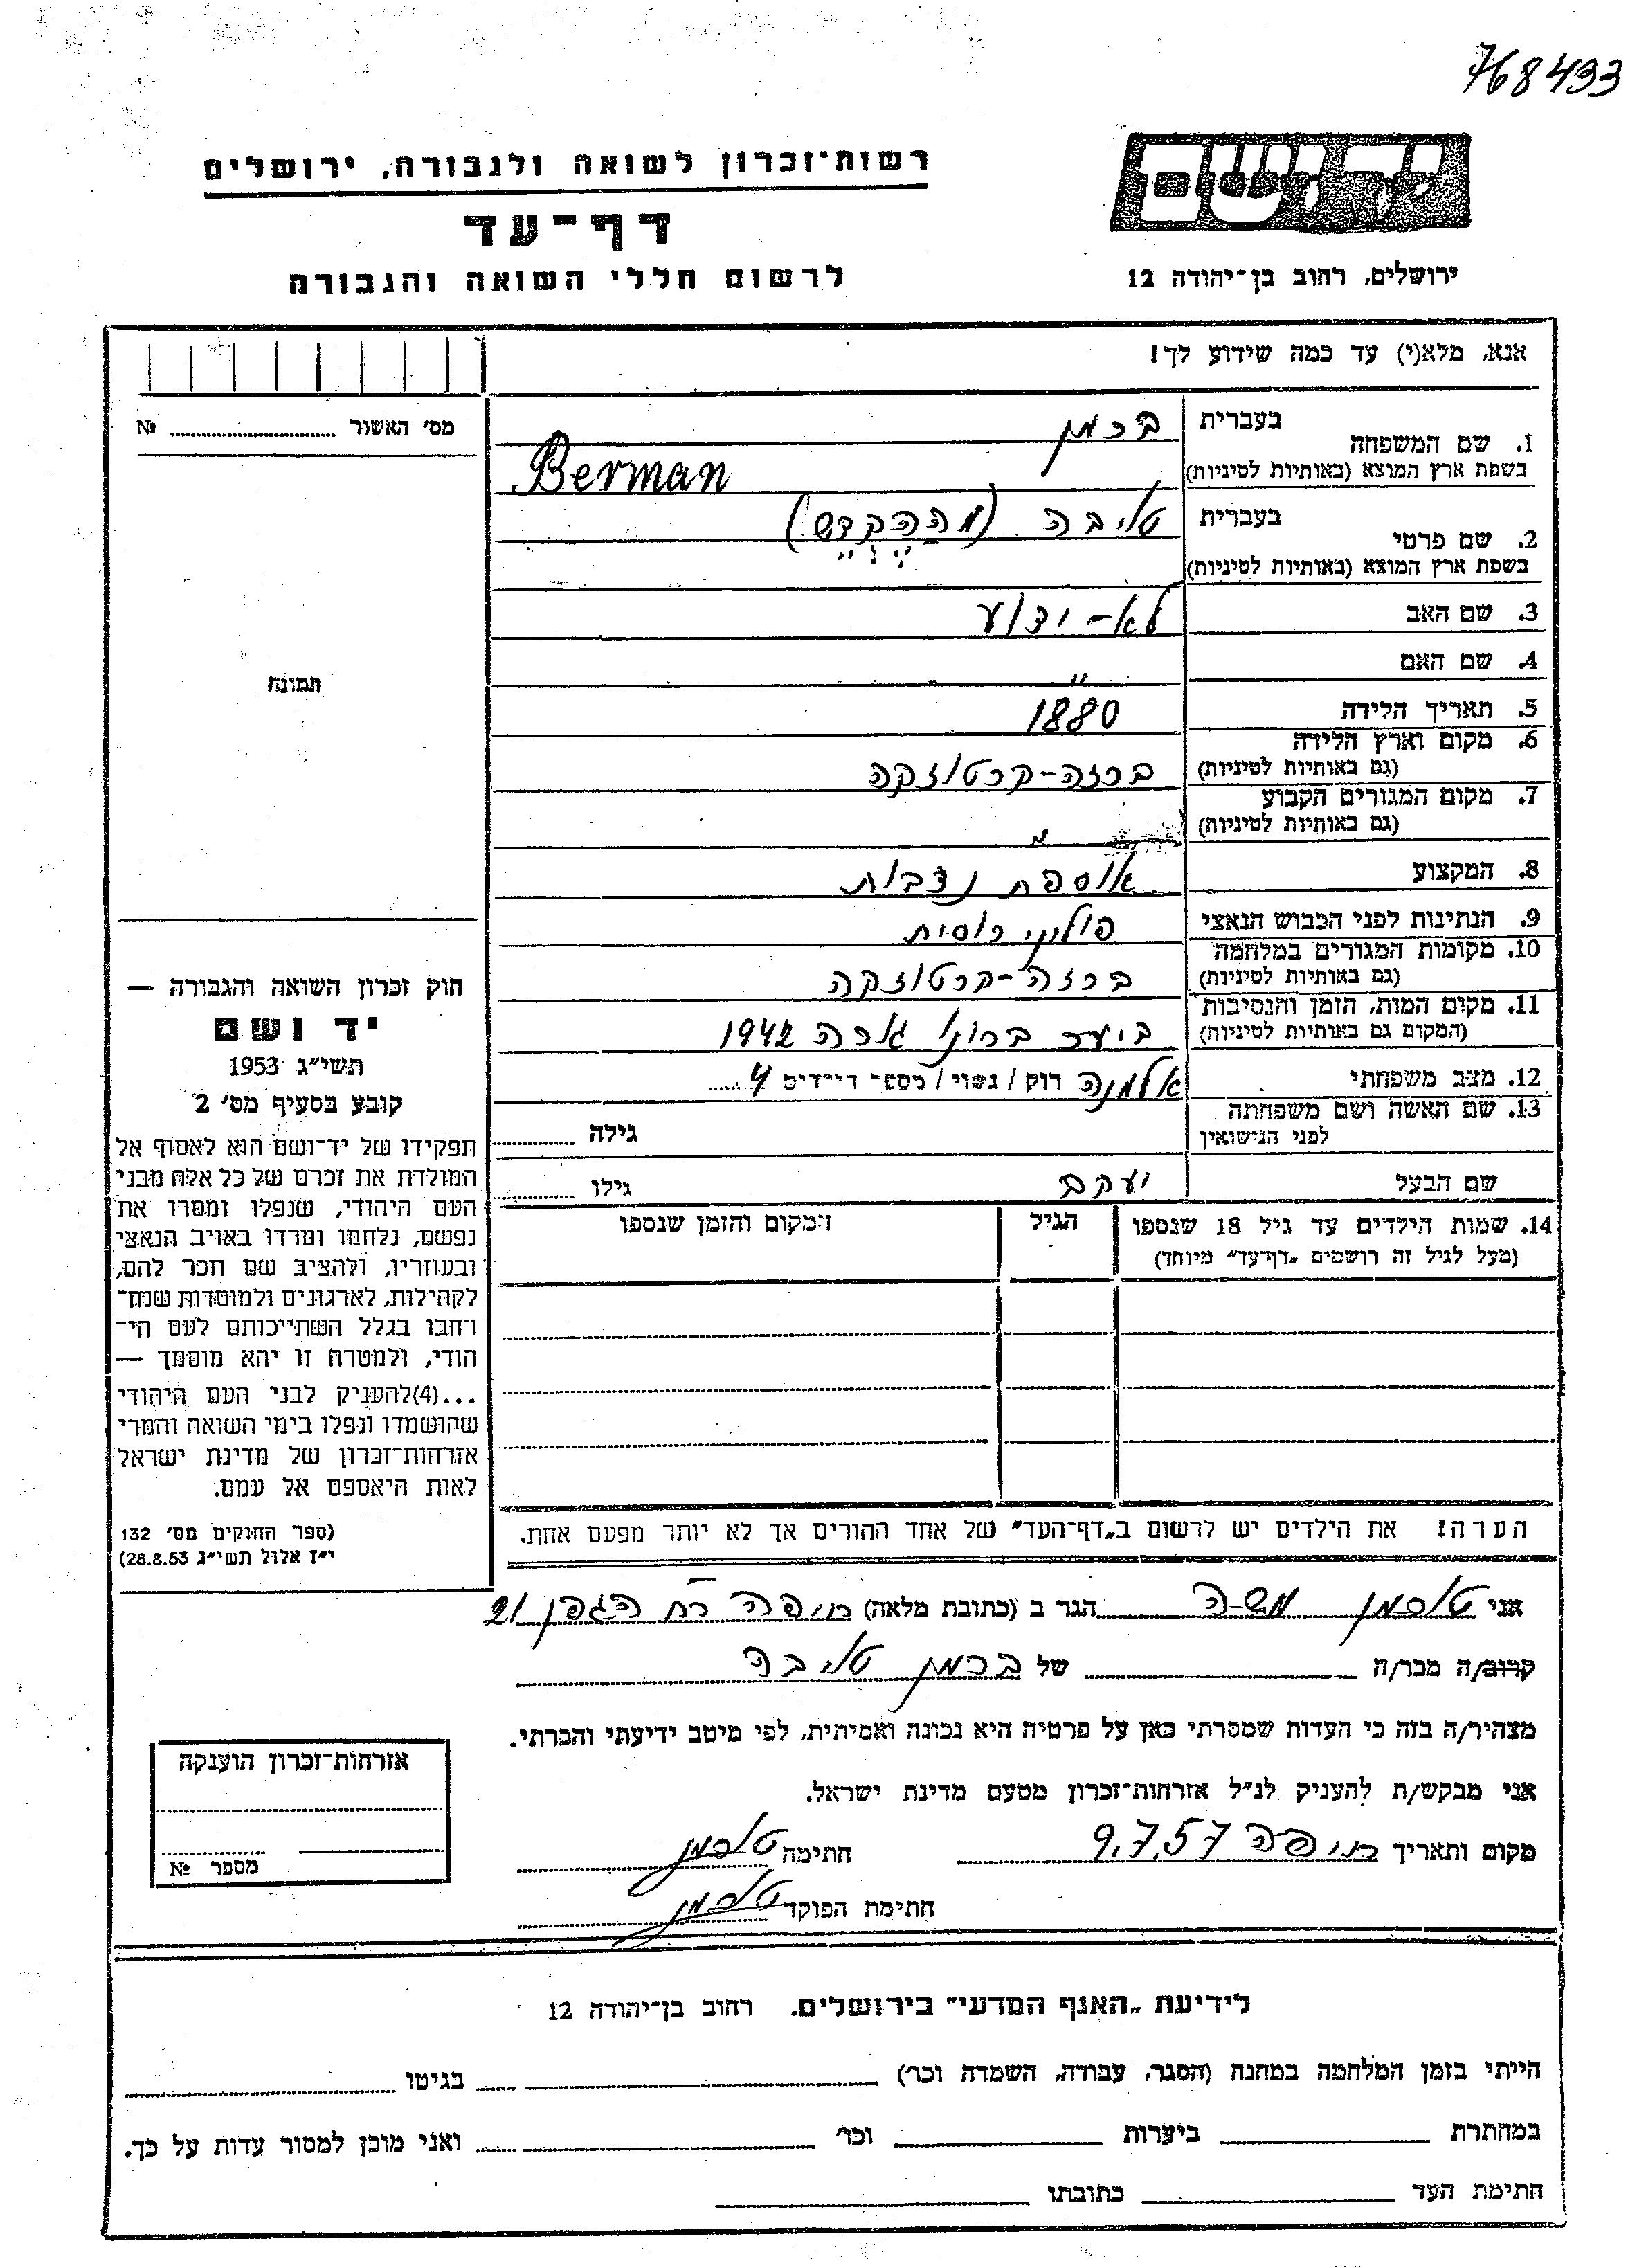 768433
יד ושם
רשות־זכרון לשואה ולגבורה, ירושלים
דף־עד
לרשום חללי השואה והגבורה
ירושלים, רחוב בן־יהודה 12
אנא, מלא(י) עד כמה שידוע לך!
מס׳ האשור № 
1. שם המשפחה
בעברית ברמן
בשפת ארץ המוצא (באותיות לטיניות) Berman
2. שם פרטי
בעברית טויבה (מההקדש)
בשפת ארץ המוצא (באותיות לטיניות)
3. שם האב לא-ידוע
4. שם האם "
5. תאריך הלידה 1880
6. מקום וארץ הלידה
(גם באותיות לטיניות) ברזה-קרטוזקה
7. מקום המגורים הקבוע
(גם באותיות לטיניות) "
8. המקצוע אוספת נדבות
9. הנתינות לפני הכבוש הנאצי פולני רוסית
10. מקומות המגורים במלחמה
(גם באותיות לטיניות) ברזה-קרטוזקה
11. מקום המות, הזמן והנסיבות
(המקום גם באותיות לטיניות) ביער ברונו גורה 1942
12. מצב משפחתי אלמנה רוק / נשוי / מספ׳ הילדים 4
13. שם האשה ושם משפחתה
לפני הנישואין
גילה
שם הבעל יעקב גילו
14. שמות הילדים עד גיל 18 שנספו
(מעל לגיל זה רושמים „דף־עד" מיוחד)
הגיל
המקום והזמן שנספו
הערה! את הילדים יש לרשום ב„דף־העד" של אחד ההורים אך לא יותר מפעם אחת.
תמונה
חוק זכרון השואה והגבורה —
יד ושם
תשי״ג 1953
קובע בסעיף מס׳ 2
תפקידו של יד־ושם הוא לאסוף אל
המולדת את זכרם של כל אלה מבני
העם היהודי, שנפלו ומסרו את
נפשם, נלחמו ומרדו באויב הנאצי
ובעוזריו, ולהציב שם וזכר להם,
לקהילות, לארגונים ולמוסדות שנח־
רחבו בגלל השתייכותם לעם הי־
הודי, ולמטרה זו יהא מוסמך —
...(4)להעניק לבני העם היהודי
שהושמדו ונפלו בימי השואה והמרי
אזרחות־זכרון של מדינת ישראל
לאות היאספם אל עמם.
(ספר החוקים מס׳ 132
י״ז אלול תשי״ג 28.8.53)
אני טוכמן משה הגר ב (כתובת מלאה) חיפה רח הגפן 21
קרוב/ה מכר/ה של ברמן טויבה
מצהיר/ה בזה כי העדות שמסרתי כאן על פרטיה היא נכונה ואמיתית, לפי מיטב ידיעתי והכרתי.
אני מבקש/ת להעניק לנ״ל אזרחות־זכרון מטעם מדינת ישראל.
מקום ותאריך חיפה 9.7.57 חתימה טוכמן
חתימת הפוקד טוכמן
אזרחות־זכרון הוענקה
מספר №
לידיעת „האגף המדעי" בירושלים. רחוב בן־יהודה 12
הייתי בזמן המלחמה במחנה (הסגר, עבודה, השמדה וכר׳) בגיטו
במחתרת ביערות וכר׳ ואני מוכן למסור עדות על כך.
חתימת העד כתובתו